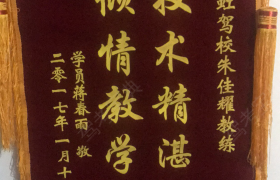 虹驾校朱佳耀教练
技术精湛
倾情教学
学员蒋春雨 敬
二零一七年一月十